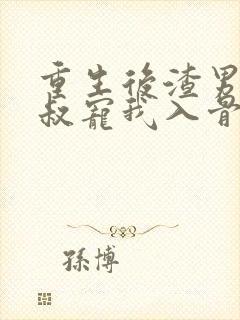 重生後渣男
叔寵我入骨
孫博